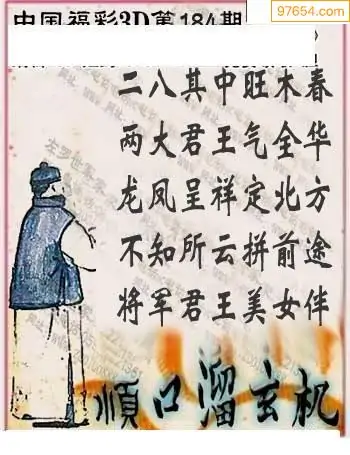 97654.com
中国福彩3D第184期
二八其中旺木春
两大君王气全华
龙凤呈祥定北方
不知所云拼前途
将军君王美女伴
顺口溜玄机